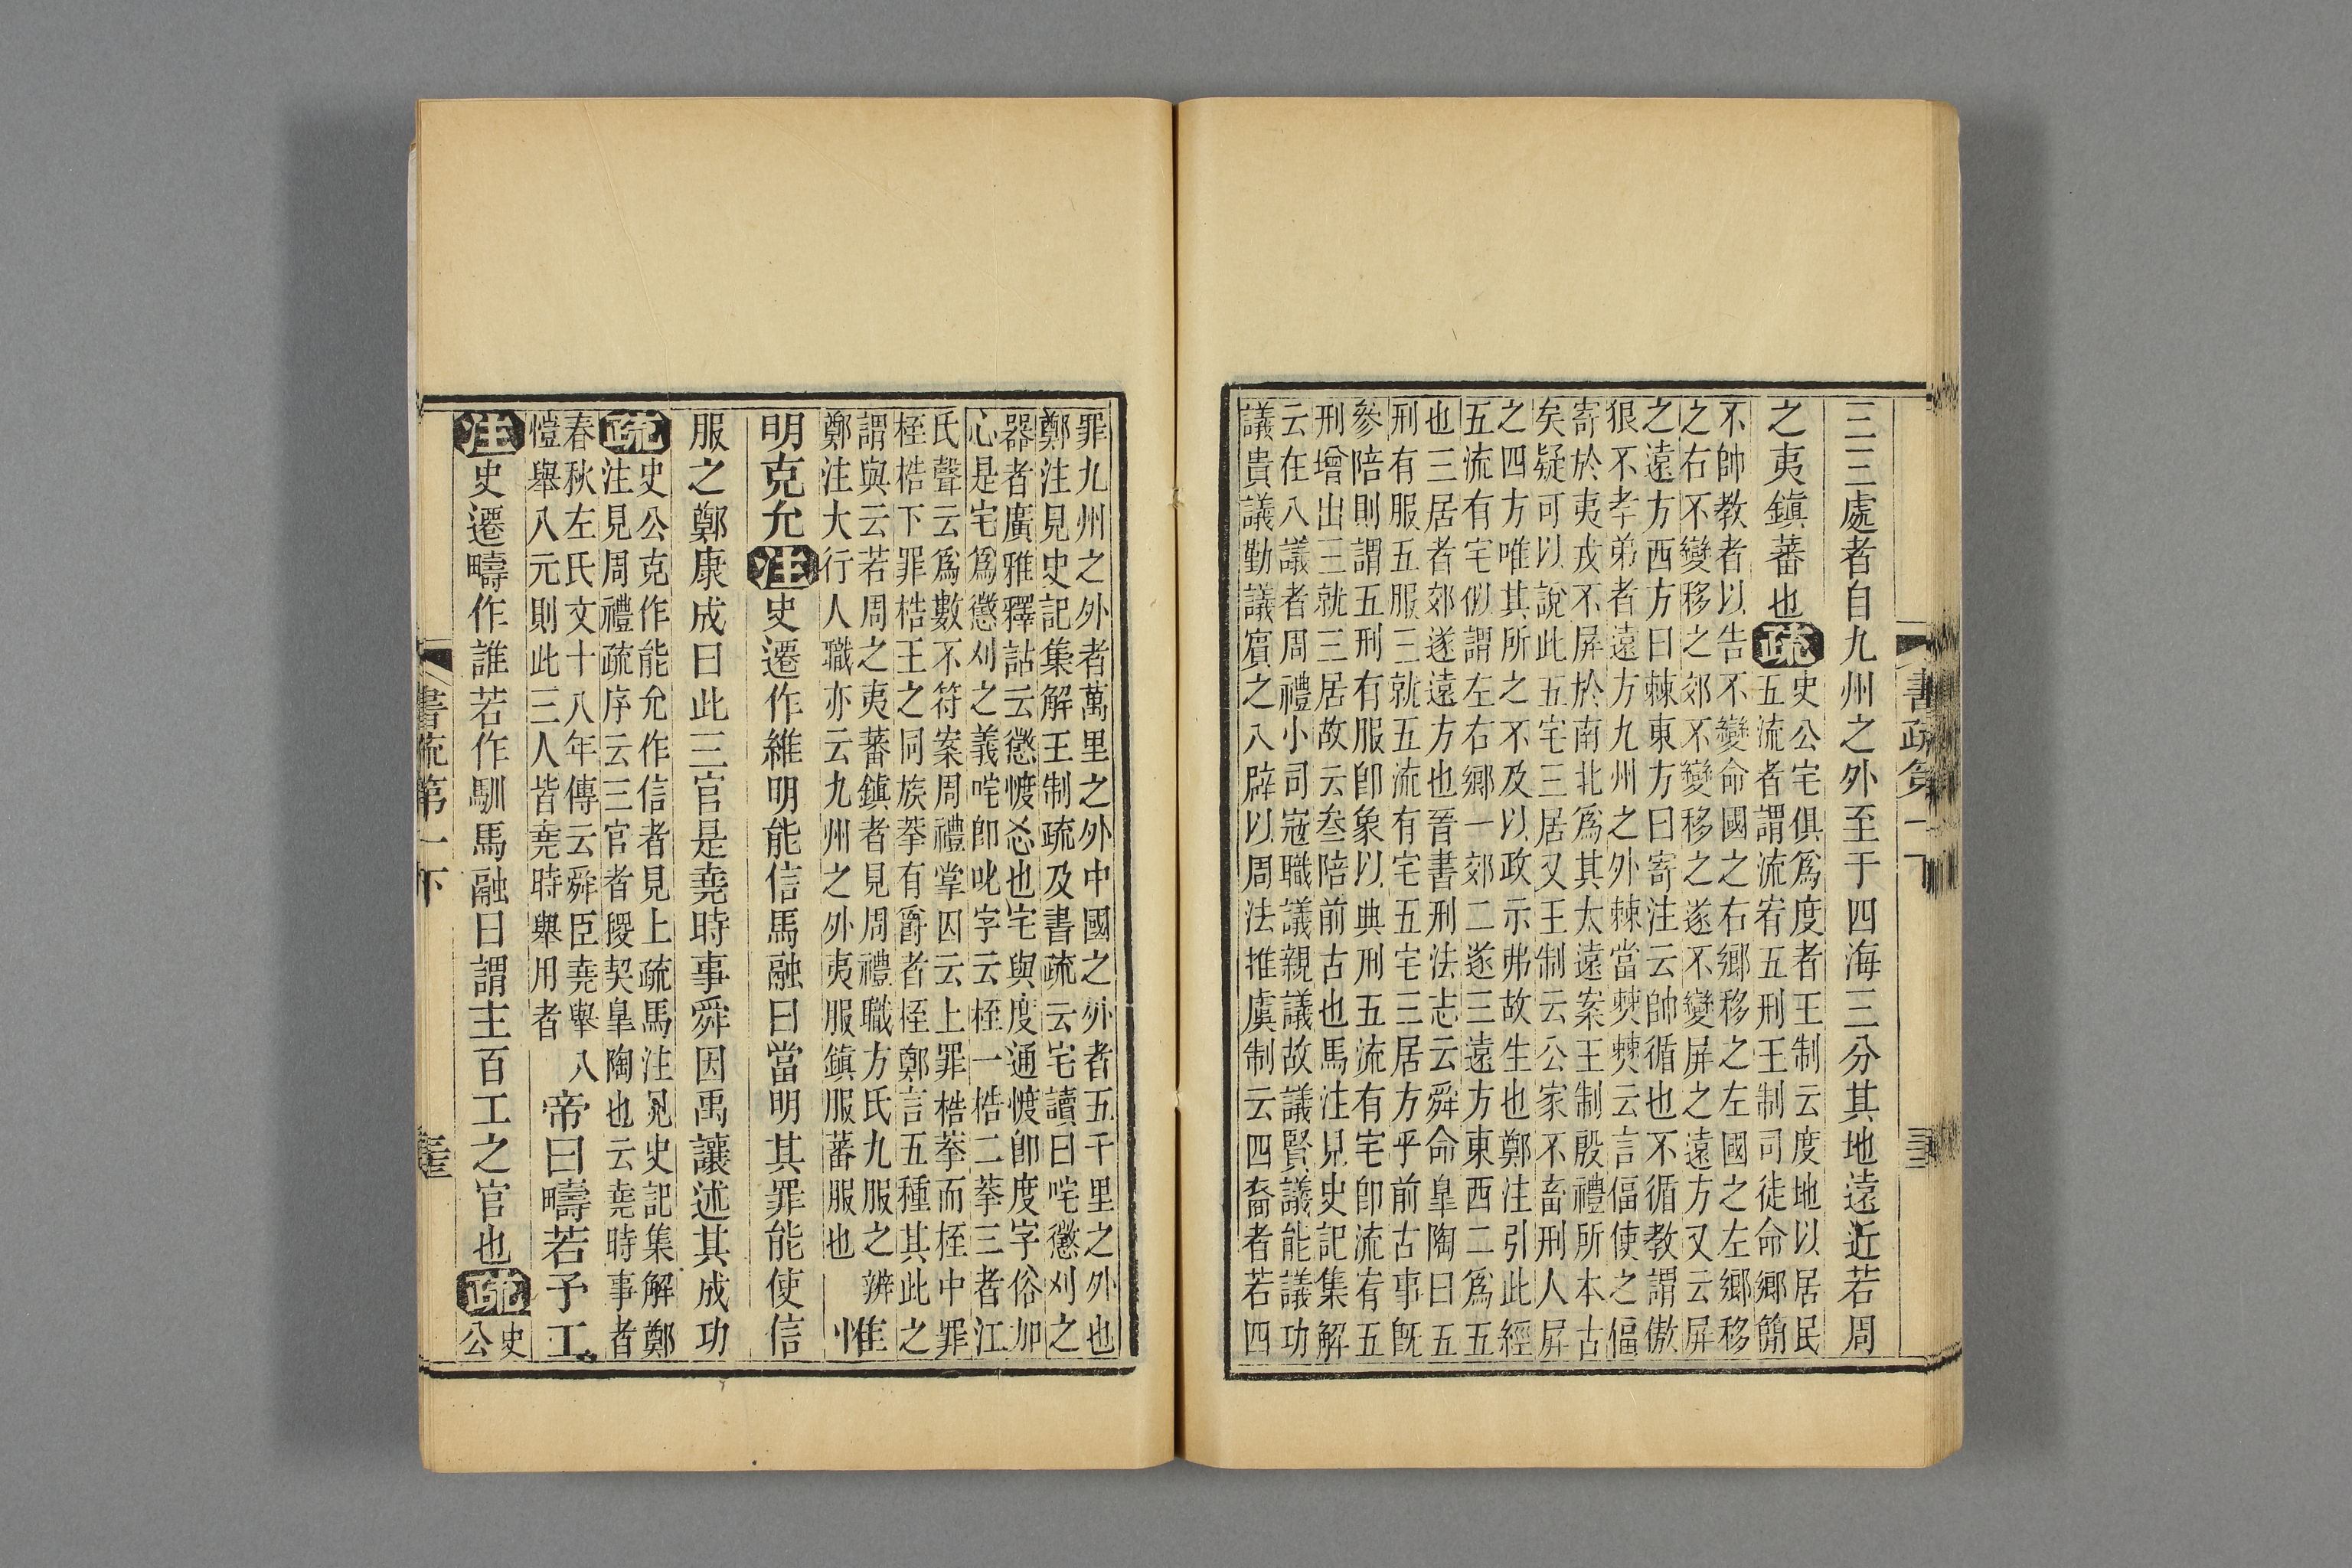 書疏第一下
三三處者自九州之外至于四海三分其地遠近若周
之夷鎮蕃也疏
史公宅俱爲度者王制云度地以居民
五流者謂流宥五刑王制司徒命鄉簡
不帥教者以告不變命國之右鄉移之左國之左鄉移
之右不變移之郊不變移之遂不變屏之遠方又云屏
之遠方西方曰棘東方曰寄注云帥循也不循教謂傲
狠不孝弟者遠方九州之外棘當僰僰云言偪使之偪
寄於夷戎不屏於南北爲其太遠案王制殷禮所本古
矣疑可以說此五宅三居又王制云公家不畜刑人屏
之四方唯其所之不及以政示弗故生也鄭注引此經
五流有宅似謂左右鄉一郊二遂三遠方東西二爲五
也三居者郊遂遠方也晉書刑法志云舜命皐陶曰五
刑有服五服三就五流有宅五宅三居方乎前古事旣
參陪則謂五刑有服卽象以典刑五流有宅卽流宥五
刑增出三就三居故云叁陪前古也馬注見史記集解
云在八議者周禮小司寇職議親議故議賢議能議功
議貴議勤議賓之八辟以周法推虞制云四裔者若四
罪九州之外者萬里之外中國之外者五千里之外也
鄭注見史記集解王制疏及書疏云宅讀曰咤懲刈之
器者廣雅釋詁云懲㦜忞也宅與度通㦜卽度字俗加
心是宅爲懲刈之義咤卽叱字云桎一梏二拲三者江
氏聲云爲數不符案周禮掌囚云上罪梏拲而桎中罪
桎梏下罪梏王之同族拲有爵者桎鄭言五種其此之
謂與云若周之夷蕃鎮者見周禮職方氏九服之辨
鄭注大行人職亦云九州之外夷服鎮服蕃服也
惟
明克允注史遷作維明能信馬融曰當明其罪能使信
服之鄭康成曰此三官是堯時事舜因禹讓述其成功
疏
史公克作能允作信者見上疏馬注見史記集解鄭
注見周禮疏序云三官者稷契皐陶也云堯時事者
春秋左氏文十八年傳云舜臣堯舉八
愷舉八元則此三人皆堯時舉用者
帝曰疇若予工
注史遷疇作誰若作馴馬融曰謂主百工之官也疏
史
公
書疏第一下